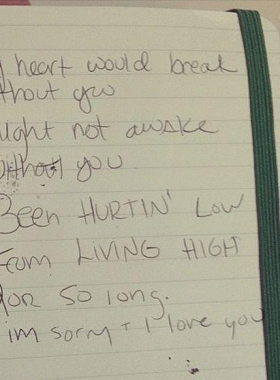 heart would break
thout you
ught not awake
without you
Been HURTIN' LOW
From LiViNG HIGH
for so long.
im sorry + I love you